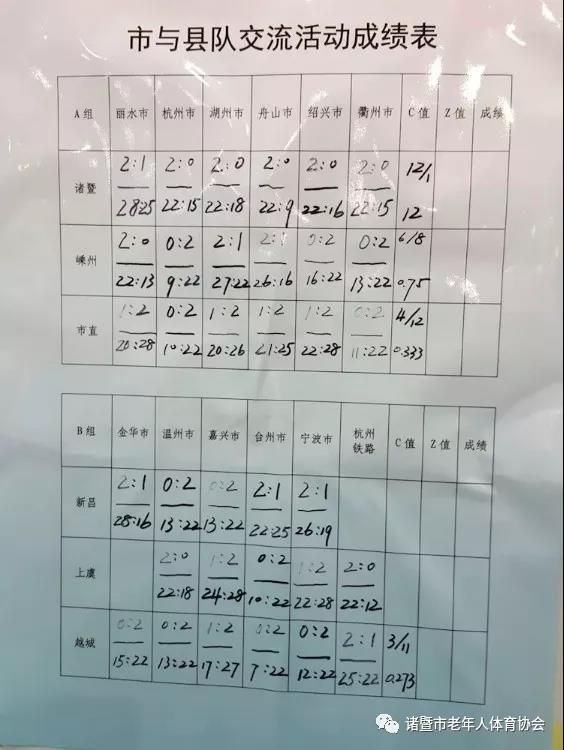 市与县队交流活动成绩表
A组 丽水市 杭州市 湖州市 舟山市 绍兴市 衢州市 C值 Z值 成绩
2:1 2:0 2:0 2:0 2:0 2:0 12/1
诸暨
28:25 22:15 22:18 22:9 22:16 22:15 12
2:0 0:2 2:1 2:1 0:2 0:2 6/8
嵊州
22:13 9:22 27:22 26:16 16:22 13:22 0.75
1:2 0:2 1:2 1:2 1:2 0:2 4/12
市直
20:28 10:22 20:26 21:25 22:28 11:22 0.333
B组 金华市 温州市 嘉兴市 台州市 宁波市 杭州铁路 C值 Z值 成绩
2:1 0:2 0:2 2:1 2:1
新昌
28:16 13:22 13:22 22:25 26:19
2:0 1:2 0:2 1:2 2:0
上虞
22:18 24:28 10:22 22:28 22:12
0:2 0:2 1:2 0:2 0:2 2:1 3/11
越城
15:22 13:22 17:27 7:22 12:22 25:22 0.273
诸暨市老年人体育协会